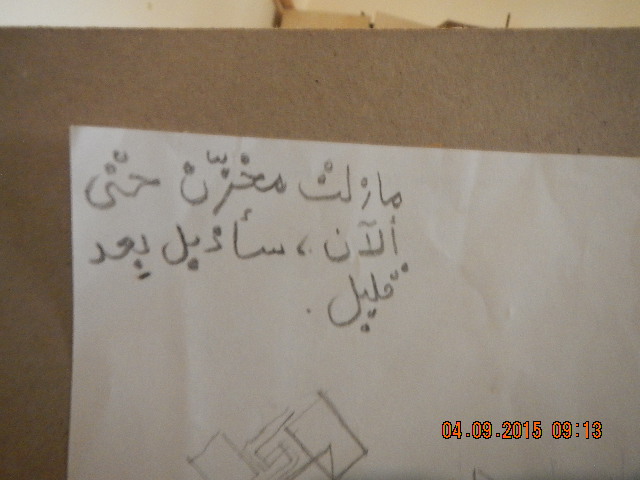 مازلت مخزّن حتى
الآن ، سأذبل بعد
قليل .
04.09.2015 09:13